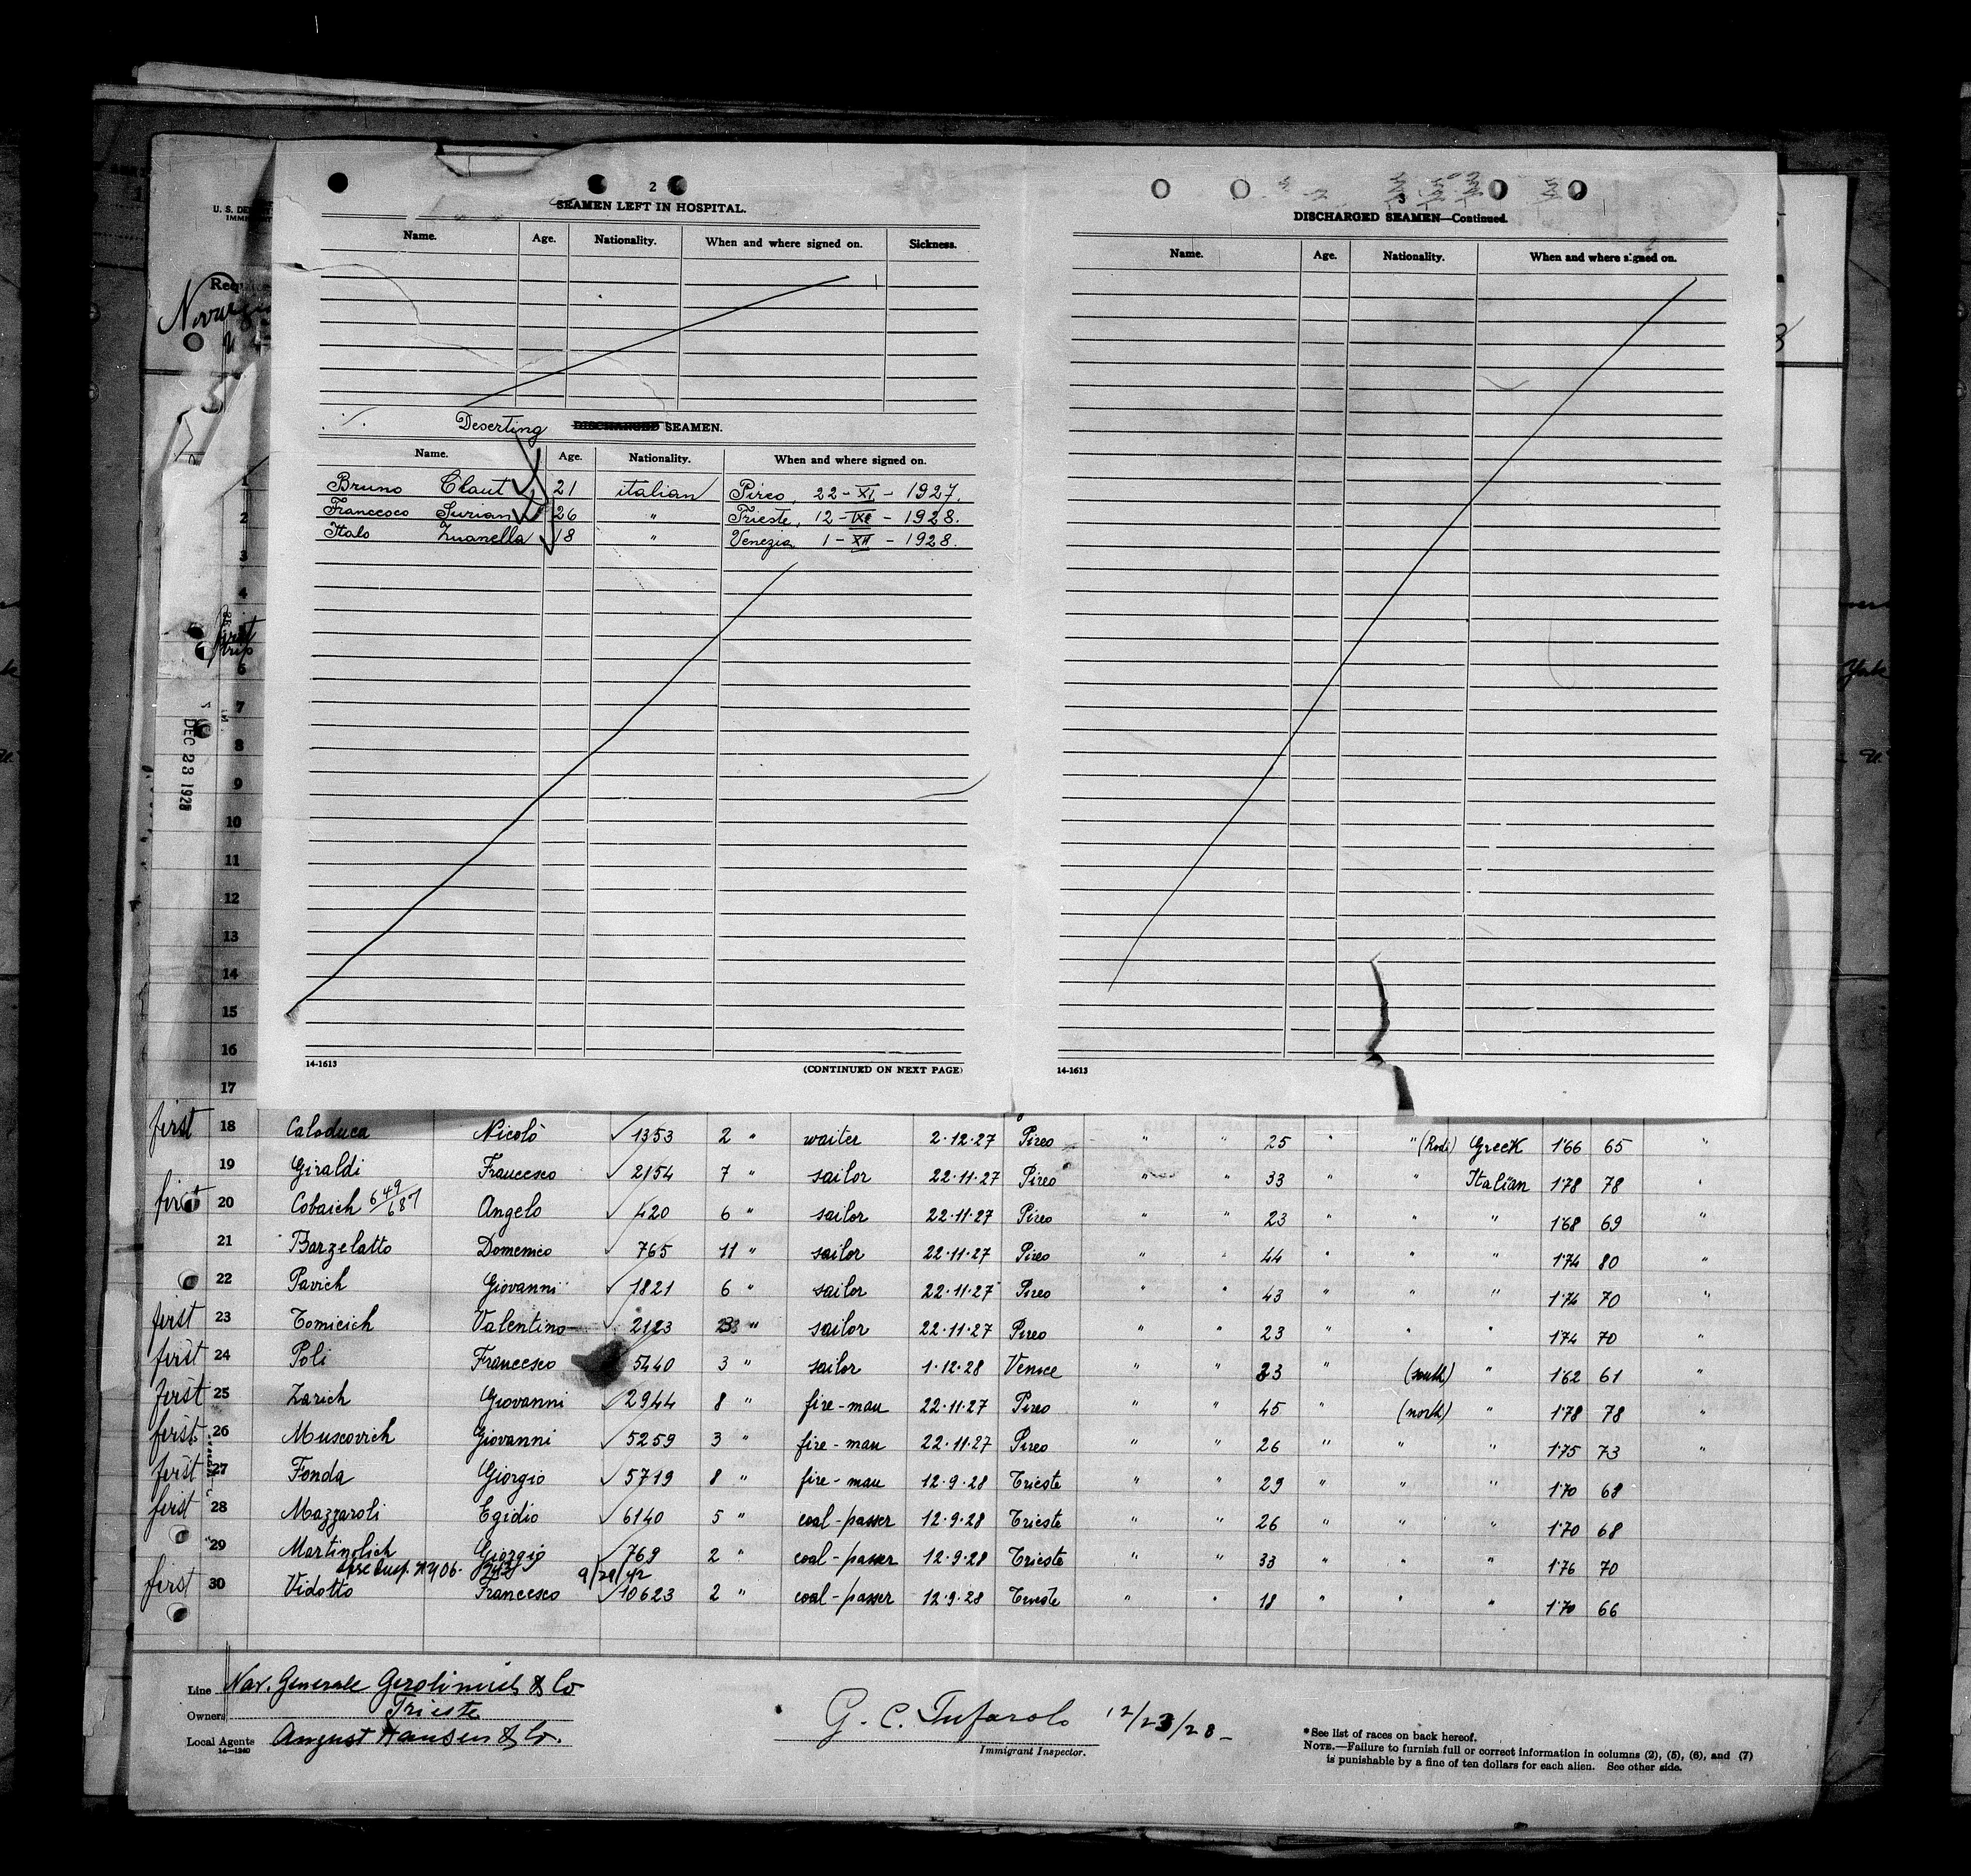 2
SEAMEN LEFT IN HOSPITAL.
Name. Age. Nationality. When and where signed on. Sickness.
Deserting DISCHARGED SEAMEN.
Name. Age. Nationality. When and where signed on.
Bruno Claut 21 italian Pireo, 22-XI-1927.
Francesco Surian 26 " Trieste, 12-IX-1928.
Italo Zuanella 18 " Venezia 1-XII-1928.
14-1613 (CONTINUED ON NEXT PAGE)
3
DISCHARGED SEAMEN—Continued.
Name. Age. Nationality. When and where signed on.
14-1613
U. S. DE
IMMI
Req
1
2
3
4
first trip
6
7
8
DEC 23 1928
9
10
11
12
13
14
15
16
17
first 18 Caloduca Nicolò 1353 2 " waiter 2.12.27 Pireo " " 25 " " (Rodi) Greek 1'66 65 "
19 Giraldi Francesco 2154 7 " sailor 22.11.27 Pireo " " 33 " " Italian 1'78 78 "
first 20 Cobaich 649/687 Angelo 420 6 " sailor 22.11.27 Pireo " " 23 " " " 1'68 69 "
21 Barzelatto Domenico 765 11 " sailor 22.11.27 Pireo " " 44 " " " 1'74 80 "
22 Pavich Giovanni 1821 6 " sailor 22.11.27 Pireo " " 43 " " " 1'74 70 "
first 23 Tomicich Valentino 2123 " sailor 22.11.27 Pireo " " 23 " " " 1'74 70 "
first 24 Poli Francesco 5440 3 " sailor 1.12.28 Venice " " 23 " (south) " 1'62 61 "
first 25 Zarich Giovanni 2944 8 " fire-man 22.11.27 Pireo " " 45 (north) " 1'78 78 "
first 26 Muscovich Giovanni 5259 3 " fire-man 22.11.27 Pireo " " 26 " " " 1'75 73 "
first 27 Fonda Giorgio 5719 8 " fire-man 12.9.28 Trieste " " 29 " " " 1'70 68
first 28 Mazzaroli Egidio 6140 5 " coal-passer 12.9.28 Trieste " " 26 " " " 1'70 68
29 Martinolich Giorgio 769 2 " coal-passer 12.9.28 Trieste " " 33 " " " 1'76 70
9/29/42
first 30 Vidotto Francesco 10623 2 " coal-passer 12.9.28 Trieste " " 18 " " " 1'70 66
Line Nav. Generale Gerolimich & Co
Owners Trieste
Local Agents August Hansen & Co.
14—1240
G. C. Tufarolo 12/23/28
Immigrant Inspector.
*See list of races on back hereof.
NOTE.—Failure to furnish full or correct information in columns (2), (5), (6), and (7)
is punishable by a fine of ten dollars for each alien. See other side.